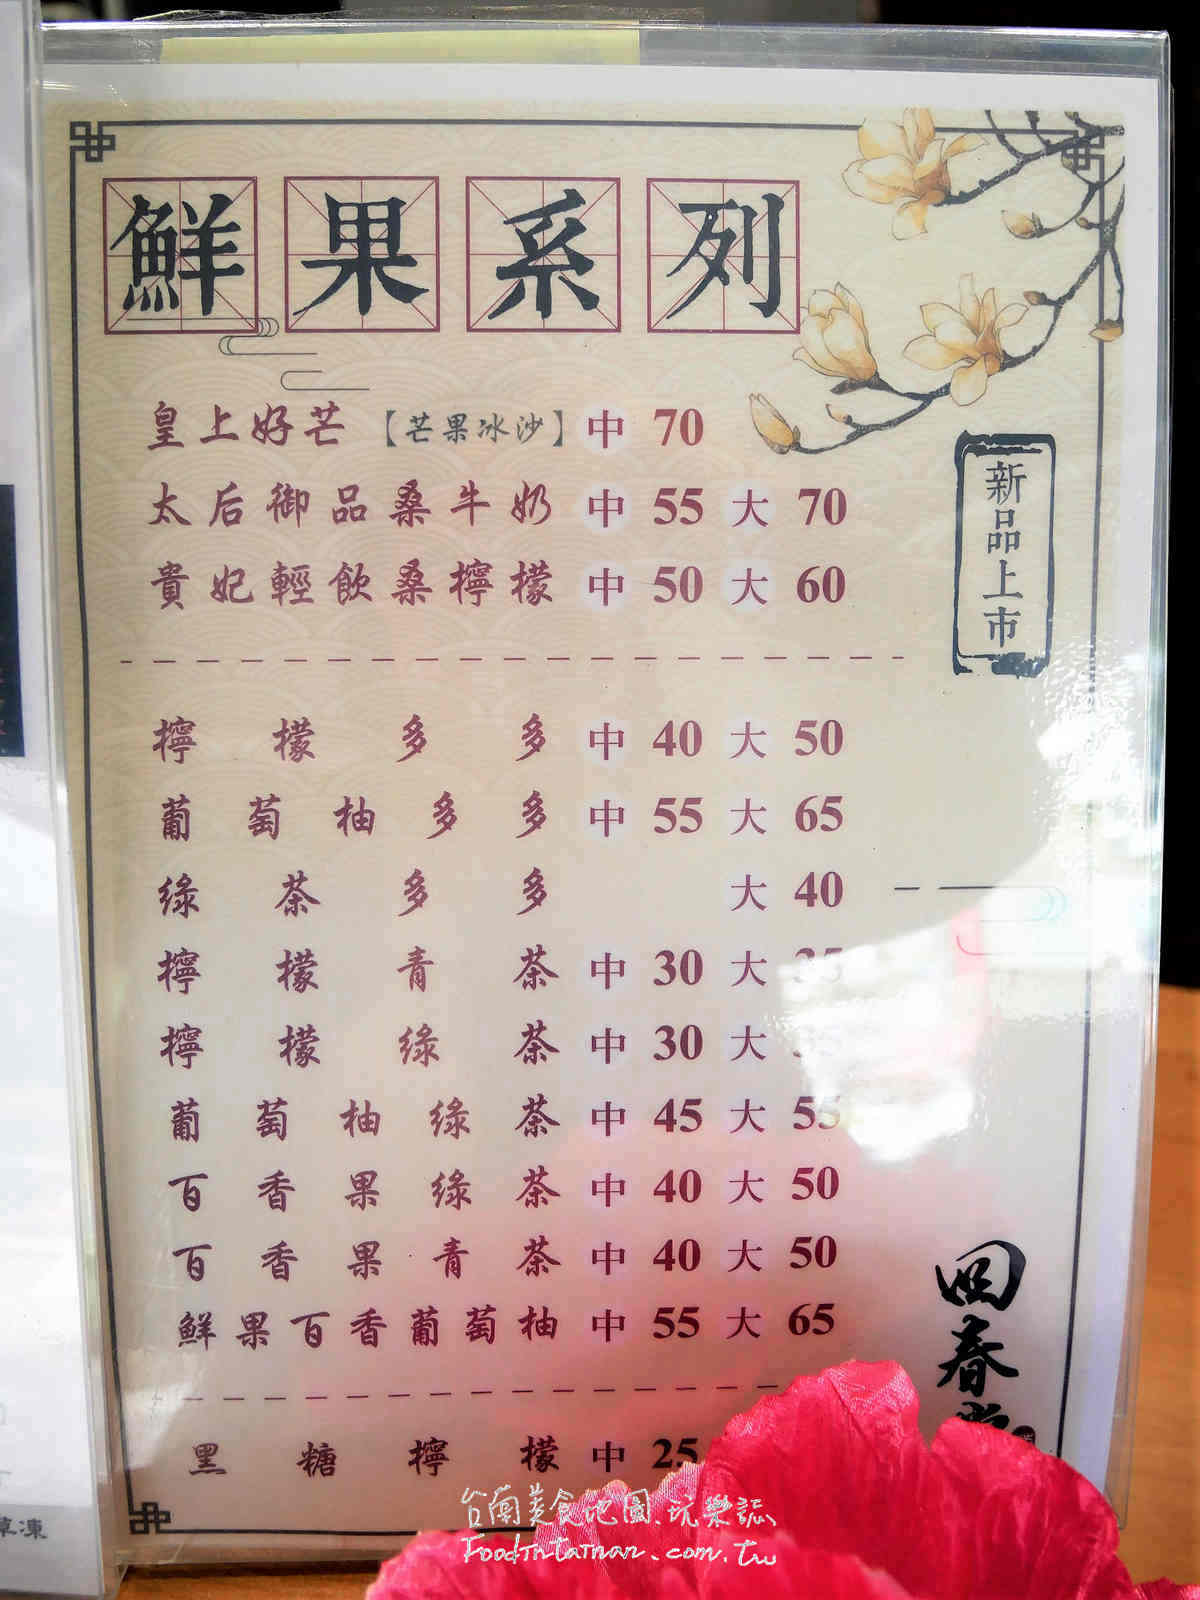 鮮果系列
皇上好芒【芒果冰沙】中 70
太后御品桑牛奶 中 55 大 70
貴妃輕飲桑檸檬 中 50 大 60
新品上市
檸檬多多 中 40 大 50
葡萄柚多多 中 55 大 65
綠茶多多 大 40
檸檬青茶 中 30 大 35
檸檬綠茶 中 30 大
葡萄柚綠茶 中 45 大 55
百香果綠茶 中 40 大 50
百香果青茶 中 40 大 50
鮮果百香葡萄柚 中 55 大 65
黑糖檸檬 中 25
回春
凍
台南美食地圖.玩樂誌
FoodTntainan.com.tw